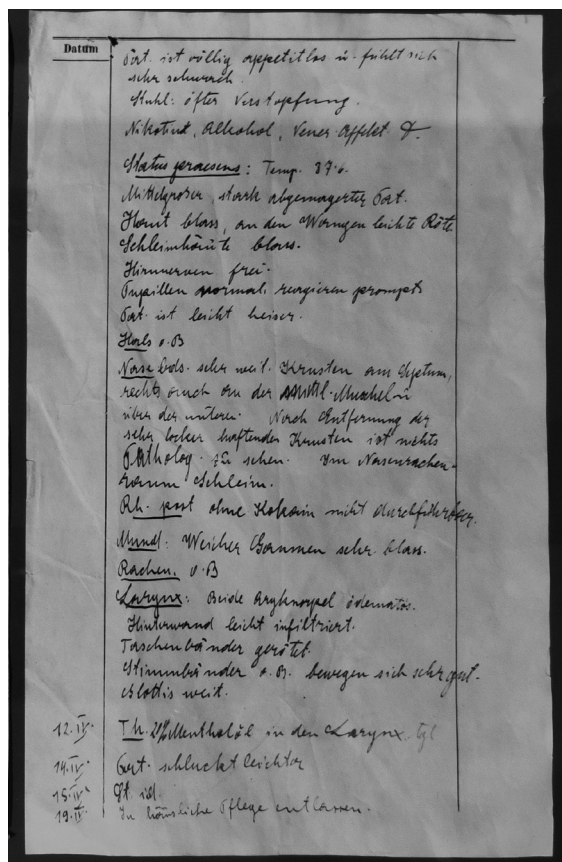 Datum
Pat. ist völlig appetitlos u. fühlt sich
sehr schwach.
Stuhl: öfter Verstopfung.
Nikotin, Alkohol, Vener. Affekt
Status praesens: Temp. 37.6.
Mittelgroser, stark abgemagerter Pat.
Haut blass, an den Wangen leichte Röte
Schleimhäute blass.
Hirnnerven frei.
Pupillen normal, reagieren prompt
Pat. ist leicht heiser.
Hals o.B
Nase bds. sehr weit. Krusten am Septum,
rechts auch an der mittl. Muschel u
über der unteren. Nach Entfernung der
sehr locker haftender Krusten ist nichts
Patholog. zu sehen. Im Nasenrachen-
raum Schleim.
Rh. post ohne Kokain nicht durchführbar.
Mund: Weicher Gaumen sehr blass.
Rachen. o.B
Larynx: Beide Aryknorpel ödematös.
Hinterwand leicht infiltriert.
Taschenbänder gerötet.
Stimmbänder o.B. bewegen sich sehr gut.
Glottis weit.
12.IV. Th. Mentholöl in den Larynx tgl
14.IV. Pat. schluckt leichter
15.IV. St. id.
19.IV. In häusliche Pflege entlassen.